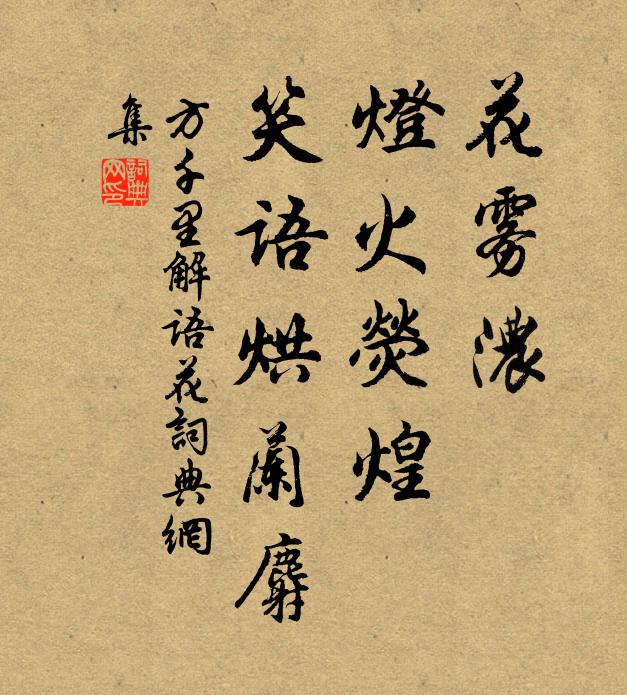 花雾濃
燈火熒煌
笑語烘蘭麝
方千里解語花詞典網
集
詞典
网印